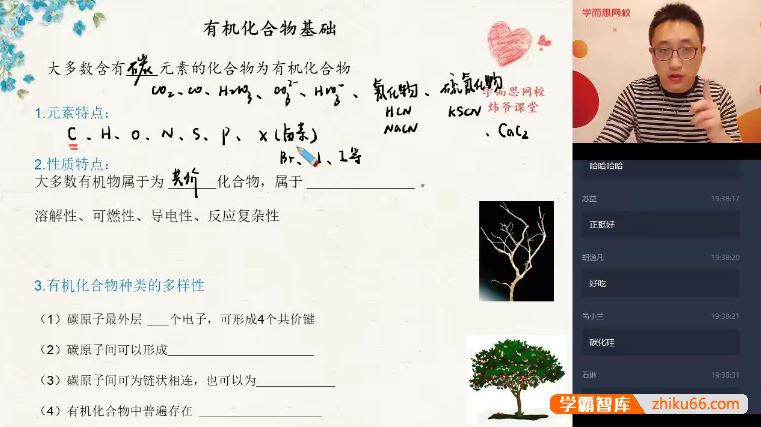 有机化合物基础
学而思网校
大多数含有 碳 元素的化合物为有机化合物
CO2、CO、H2CO3、CO3^2-、HCO3^-、氰化物、硫氰化物
学而思网校
炜爷课堂
HCN KSCN
NaCN 、CaC2
1.元素特点:
C、H、O、N、S、P、X(卤素)
Br、I等
2.性质特点:
大多数有机物属于为 共价 化合物，属于 ______________ 。
溶解性、可燃性、导电性、反应复杂性
3.有机化合物种类的多样性
（1）碳原子最外层 ___个电子，可形成4个共价键
（2）碳原子间可以形成____________________
（3）碳原子间可为链状相连，也可以为___________
（4）有机化合物中普遍存在 _________________
哈哈哈哈
苏益 19:38:17
正挺好
19:38:20
好吃
19:38:21
碳化硅
19:38:31
学霸智库 zhiku66.com